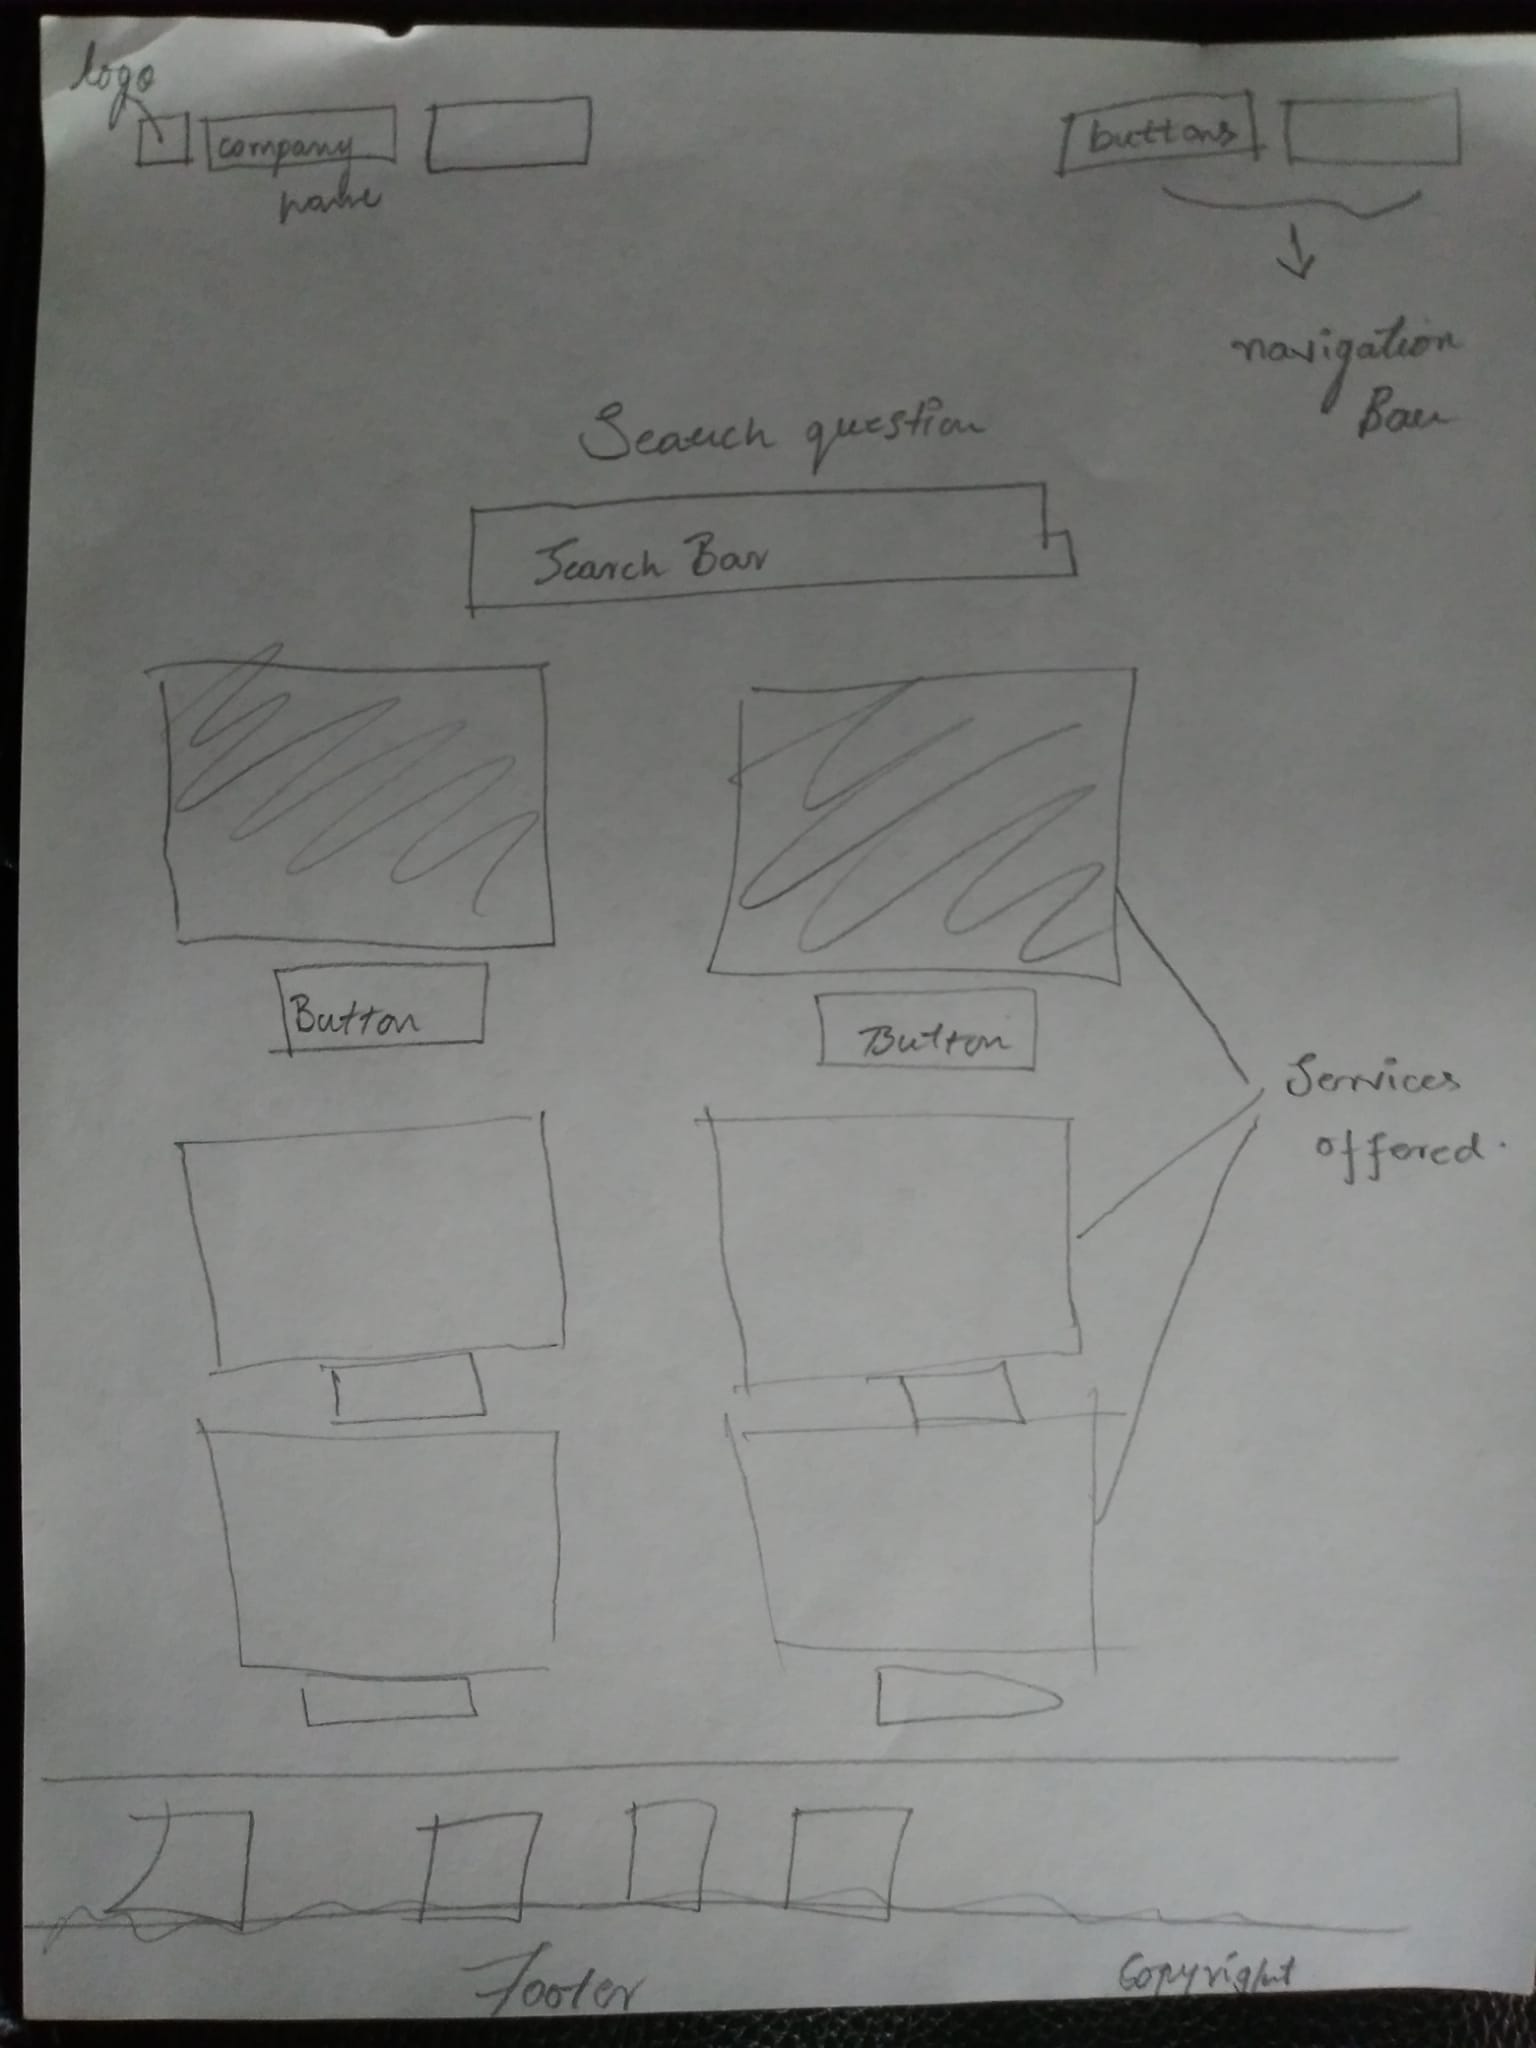 logo
company
name
buttons
navigation
Bar
Search question
Search Bar
Button
Button
Services
offered.
Footer
Copyright